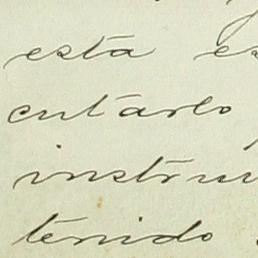 esta es
cutarlo
instru
tenido